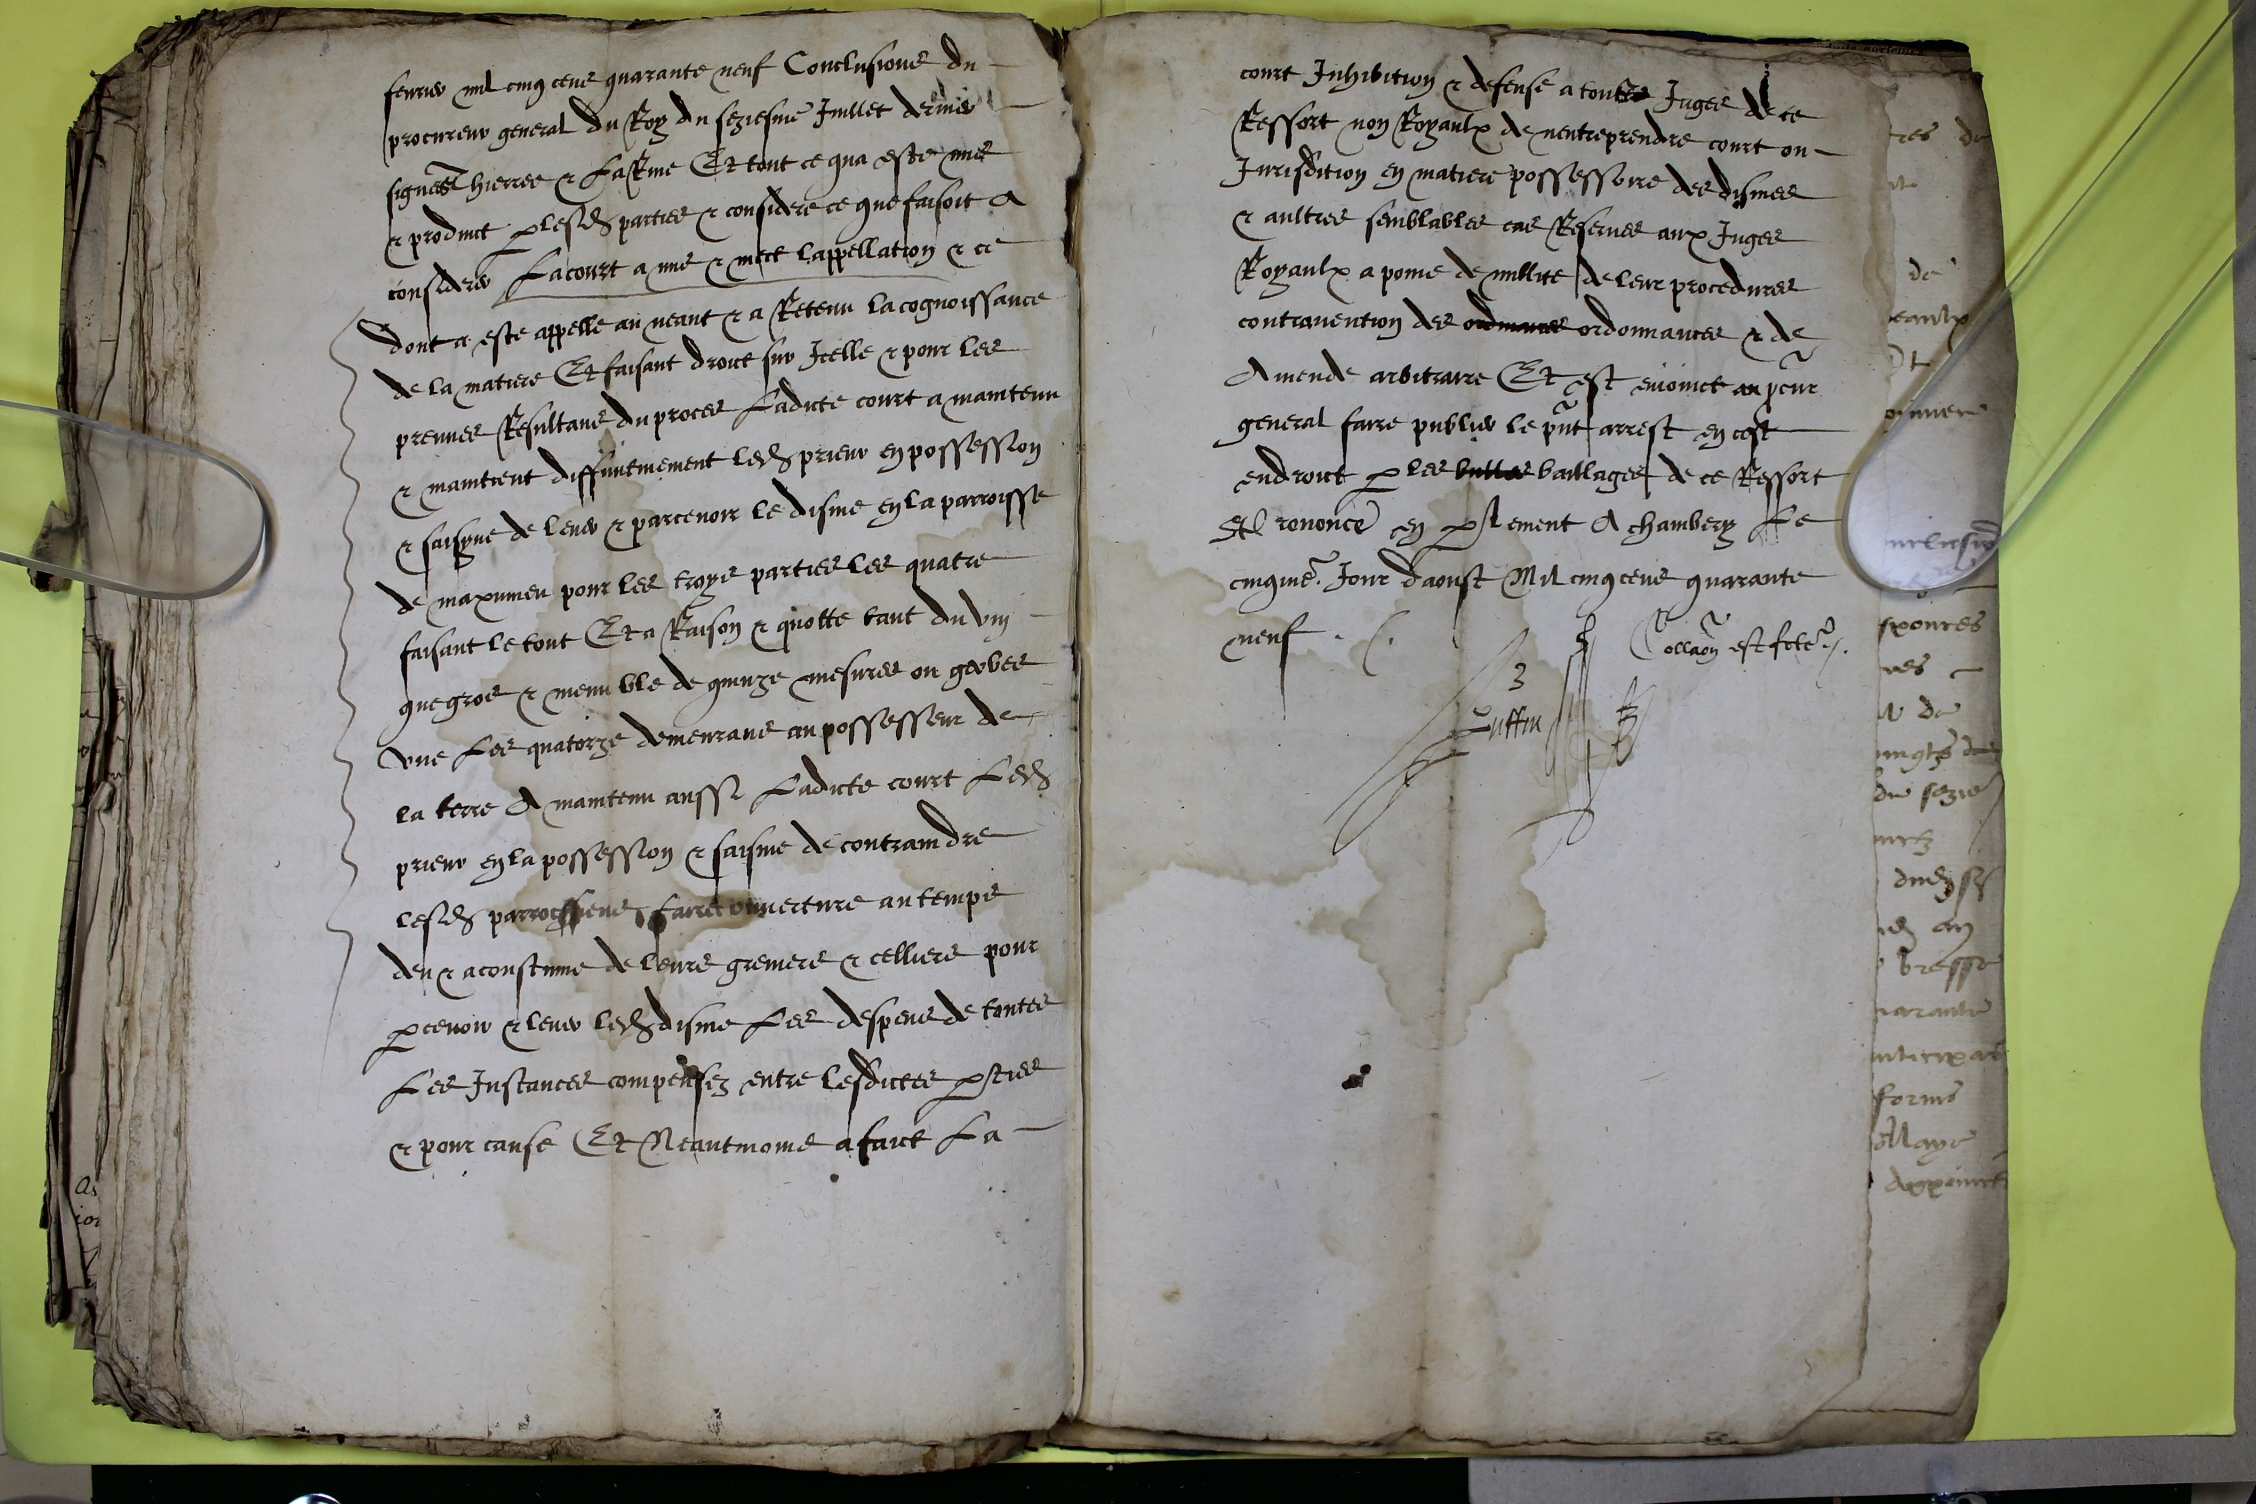 feurier mil cinq cens quarante neuf Conclusions du
procureur general du Roy du seziesme Juillet dernier
signees thierree & LaRme Et tout ce qua este mis
& produict p lesd parties & considere ce que faisoit A
considerer La court a mis & mect lappellation & ce
dont a este appelle au neant & a Retenu la cognoissance
de la matiere Et faisant droict sur Icelle & pour les
preuues Resultans du proces Ladicte court a maintenu
& maintient diffinitiuement led prieur en possession
& saisyne de leuer & parcenoir le disme en la parroisse
de maxumeu pour les troys parties les quatre
faisant le tout Et a Raison & quotte tant du vin
que gros & menu ble de quinze mesures ou gerbes
vne Les quatorze demeurans au possesseur de
la terre A maintenu aussi Ladicte court Led
prieur en la possession & saisine de contraindre
lesd parrochiens faire ouuerture au temps
deu & acoustume de leurs greniers & celliers pour
pcenoir & leuer led disme Les despens de toutes
Les Instances compensez entre lesdictes pties
& pour cause Et Neantmoins a faict La
court Inhibition & defense a toutes Juges de ce
Ressort non Royaulx de nentreprendre court ou
Jurisdition en matiere possessoire des dismes
& aultres semblables cas Reserues aux Juges
Royaulx a poine de nullite de leur procedures
contrauention des ordinances ordonnances & de
Amende arbitraire Et est enioinct au pcur
general faire publier le pnt arrest en cest
endroict p les bailliages de ce Ressort
prononce en plement A chambery Le
cinqme. Jour daoust Mil cinq cens quarante
neuf
Collaon est fcte
Ruffin